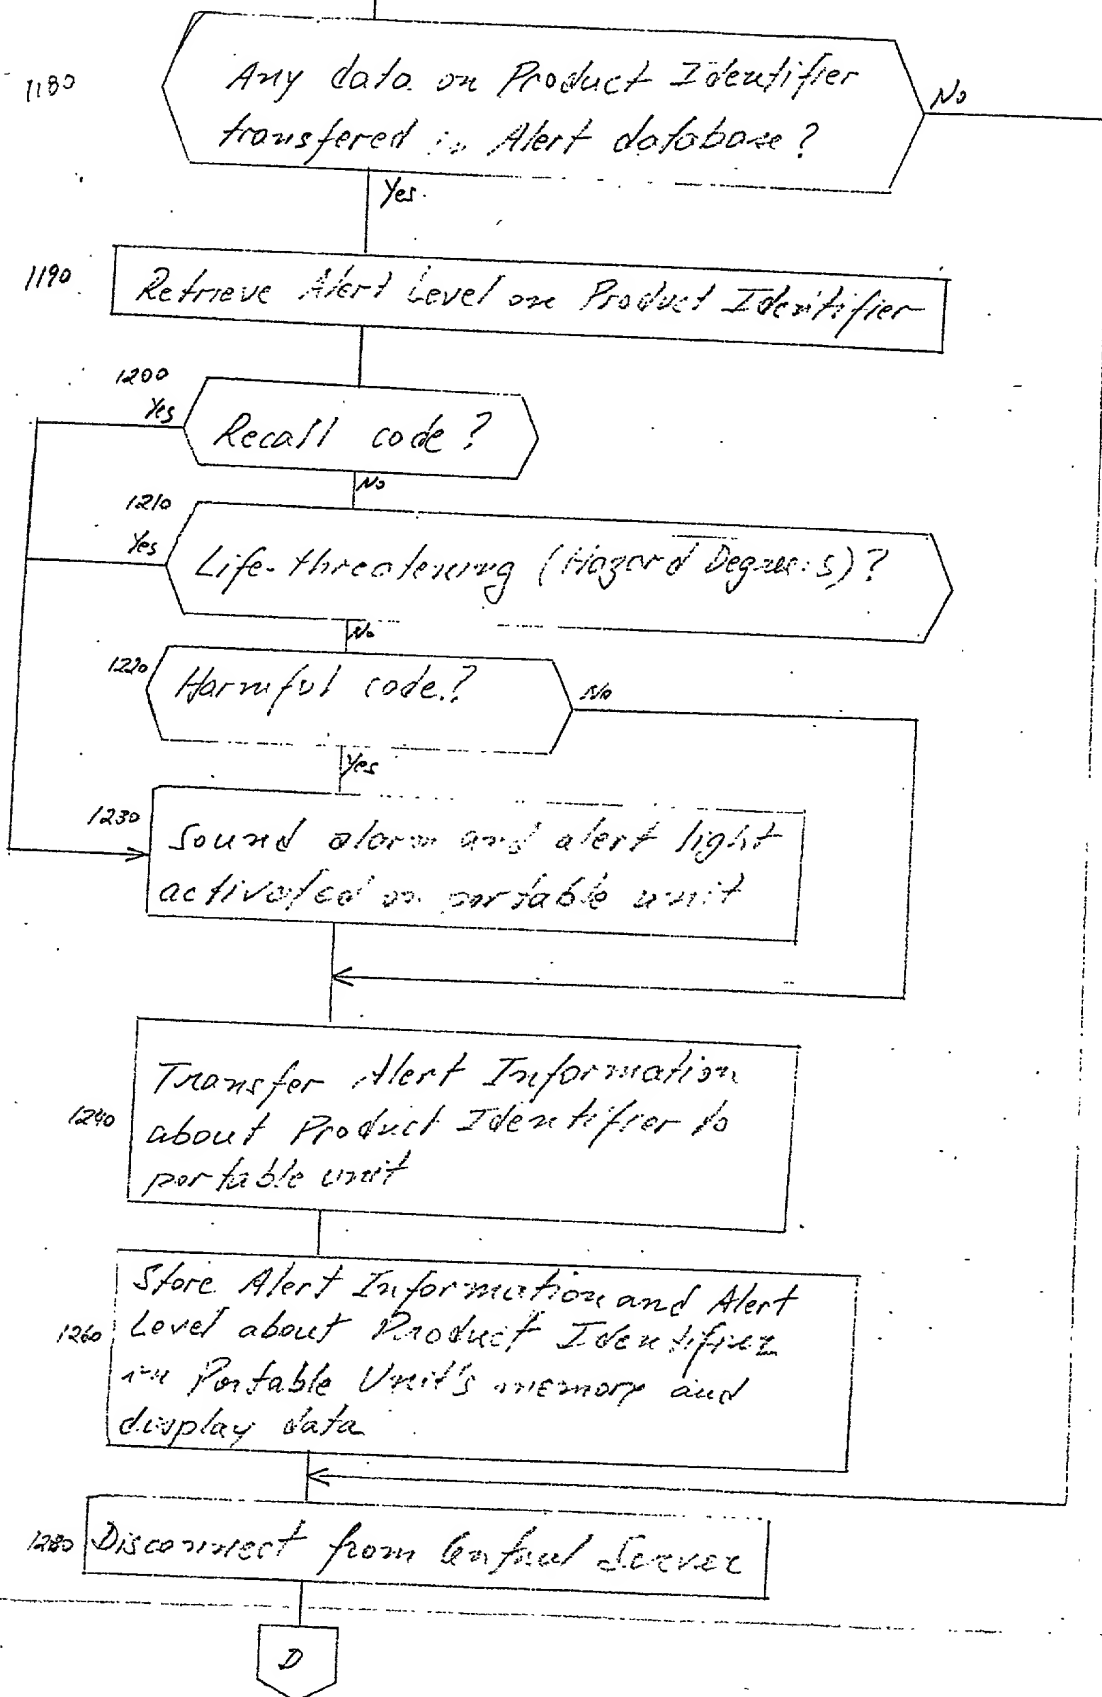 1180
Any data on Product Identifier
transfered in Alert database?
No
Yes.
1190
Retrieve Alert Level on Product Identifier
1200
Yes
Recall code?
No
1210
Yes
Life-threatening (Hazard Degree:5)?
No
1220
Harmful code?
No
Yes
1230
Sound alarm and alert light
activated on portable unit
1240
Transfer Alert Information
about Product Identifier to
portable unit
1260
Store Alert Information and Alert
Level about Product Identifier
in Portable Unit's memory and
display data
1280
Disconnect from Central Server
D